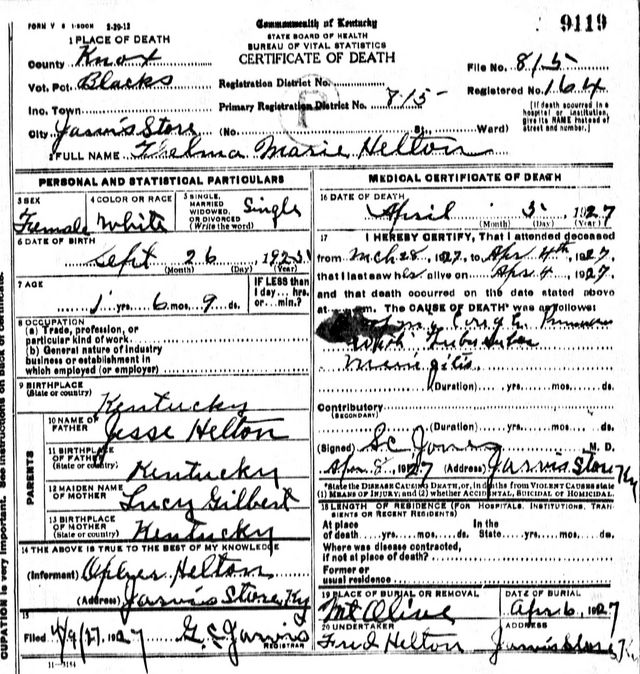 FORM V S 1-500M 2-29-12
Commonwealth of Kentucky
STATE BOARD OF HEALTH
BUREAU OF VITAL STATISTICS
CERTIFICATE OF DEATH
9119
1 PLACE OF DEATH
County Knox
File No. 815
Vot. Pct. Blacks
Registration District No.
Registered No. 164
Inc. Town
Primary Registration District No. 815
[If death occurred in a hospital or institution, give its NAME instead of street and number.]
City Jarvis Store (No. St. Ward)
2 FULL NAME Thelma Marie Helton
PERSONAL AND STATISTICAL PARTICULARS
3 SEX Female
4 COLOR OR RACE White
5 SINGLE, MARRIED WIDOWED, OR DIVORCED (Write the word) Single
6 DATE OF BIRTH
Sept 26 192
(Month) (Day) (Year)
7 AGE
1 yrs. 6 mos. 9 ds.
IF LESS than 1 day... hrs. or... min.?
8 OCCUPATION
(a) Trade, profession, or particular kind of work
(b) General nature of industry business or establishment in which employed (or employer)
9 BIRTHPLACE
(State or country) Kentucky
PARENTS
10 NAME OF FATHER Jesse Helton
11 BIRTHPLACE OF FATHER
(State or country) Kentucky
12 MAIDEN NAME OF MOTHER Lucy Gilbert
13 BIRTHPLACE OF MOTHER
(State or country) Kentucky
14 THE ABOVE IS TRUE TO THE BEST OF MY KNOWLEDGE
(Informant) Helton
(Address) Jarvis Store, Ky
15
Filed 4/9/27, 1927 G. C. Jarvis
REGISTRAR
11-3184
MEDICAL CERTIFICATE OF DEATH
16 DATE OF DEATH
April 5, 1927
(Month) (Day) (Year)
17 I HEREBY CERTIFY, That I attended deceased
from Mch 28, 1927, to Apr 4th, 1927,
that I last saw her alive on Apr 4, 1927
and that death occurred on the date stated above
at m. The CAUSE OF DEATH* was as follows:
with
(Duration) yrs. mos. ds.
Contributory
(SECONDARY)
(Duration) yrs. mos. ds.
(Signed) S C Jones M. D.
Apr 8, 1927 (Address) Jarvis Store Ky
*State the DISEASE CAUSING DEATH, or, in deaths from VIOLENT CAUSES state
(1) MEANS OF INJURY; and (2) whether ACCIDENTAL, SUICIDAL OF HOMICIDAL.
18 LENGTH OF RESIDENCE (FOR HOSPITALS, INSTITUTIONS, TRANSIENTS OR RECENT RESIDENTS)
At place In the
of death yrs. mos. ds. State yrs. mos. ds.
Where was disease contracted,
if not at place of death?
Former or
usual residence
19 PLACE OF BURIAL OR REMOVAL
Mt Olive
DATE OF BURIAL
Apr 6, 1927
20 UNDERTAKER
Fred Helton
ADDRESS
Jarvis Store, Ky
CUPATION is very important. See instructions on back of certificate.